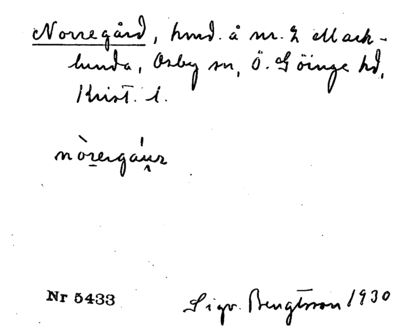 Norregård, hmd. å nr. 2 Mack-
lunda, Osby sn, Ö. Göinge hd,
Krist. l.
nòrergáur
Nr 5433
Sigv. Bengtsson 1930